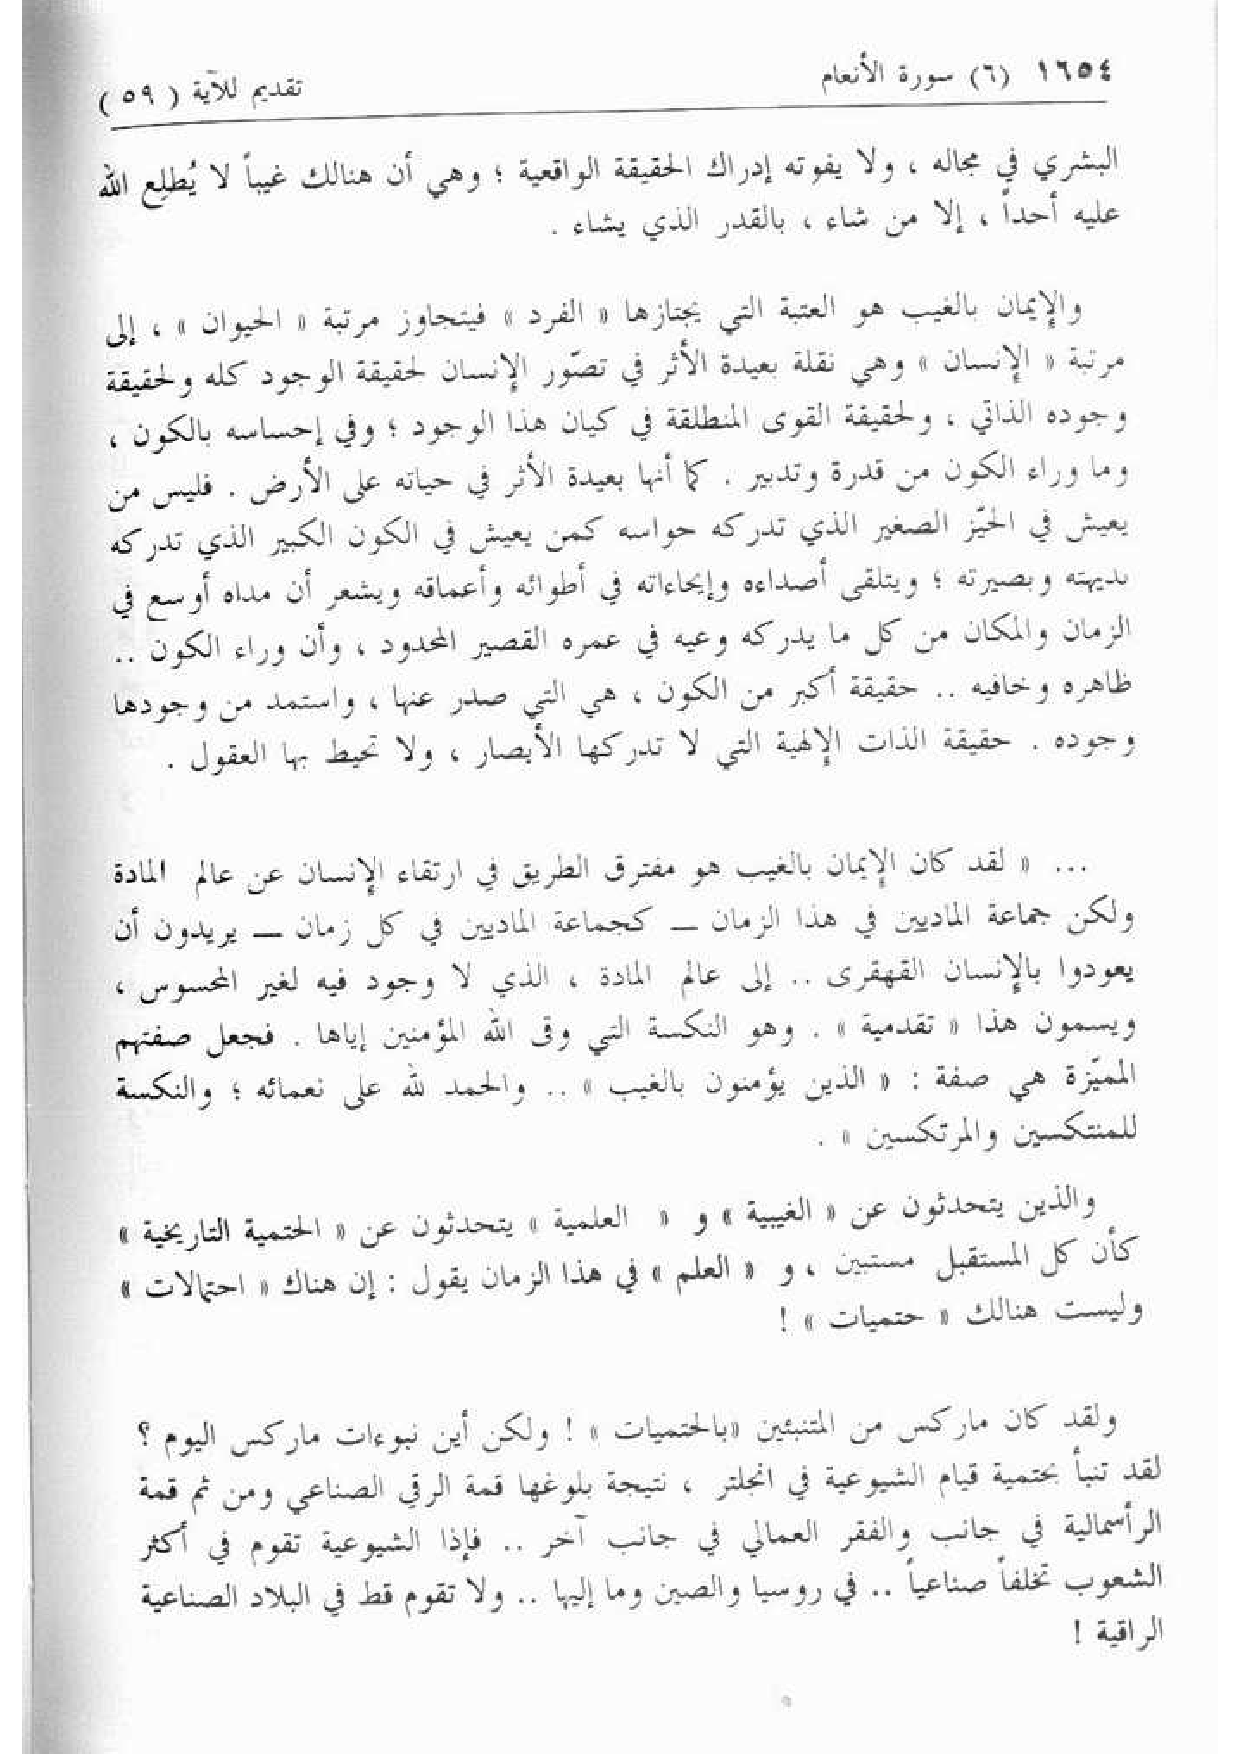 ١٦٥٤ (٦) سورة الأنعام
تقديم للآية ( ٥٩ )
البشري في مجاله ، ولا يفوته إدراك الحقيقة الواقعية ؛ وهي أن هنالك غيباً لا يُطلِع الله
عليه أحداً ، إلا من شاء ، بالقدر الذي يشاء .
والإيمان بالغيب هو العتبة التي يجتازها « الفرد » فيتجاوز مرتبة « الحيوان » ، إلى
مرتبة « الإنسان » وهي نقلة بعيدة الأثر في تصّور الإنسان لحقيقة الوجود كله ولحقيقة
وجوده الذاتي ، ولحقيقة القوى المنطلقة في كيان هذا الوجود ؛ وفي إحساسه بالكون ،
وما وراء الكون من قدرة وتدبير . كما أنها بعيدة الأثر في حياته على الأرض . فليس من
يعيش في الحيّز الصغير الذي تدركه حواسه كمن يعيش في الكون الكبير الذي تدركه
بديهته وبصيرته ؛ ويتلقى أصداءه وإيحاءاته في أطوائه وأعماقه ويشعر أن مداه أوسع في
الزمان والمكان من كل ما يدركه وعيه في عمره القصير المحدود ، وأن وراء الكون ..
ظاهره وخافيه .. حقيقة أكبر من الكون ، هي التي صدر عنها ، واستمد من وجودها
وجوده . حقيقة الذات الإلهية التي لا تدركها الأبصار ، ولا تحيط بها العقول .
... « لقد كان الإيمان بالغيب هو مفترق الطريق في ارتقاء الإنسان عن عالم المادة
ولكن جماعة الماديين في هذا الزمان – كجماعة الماديين في كل زمان – يريدون أن
يعودوا بالإنسان القهقرى .. إلى عالم المادة ، الذي لا وجود فيه لغير المحسوس ،
ويسمون هذا « تقدمية » . وهو النكسة التي وقى الله المؤمنين إياها . فجعل صفتهم
المميّزة هي صفة : « الذين يؤمنون بالغيب » .. والحمد لله على نعمائه ؛ والنكسة
للمنتكسين والمرتكسين » .
والذين يتحدثون عن « الغيبية » و « العلمية » يتحدثون عن « الحتمية التاريخية »
كأن كل المستقبل مستبين ، و « العلم » في هذا الزمان يقول : إن هناك « احتمالات »
وليست هنالك « حتميات » !
ولقد كان ماركس من المتنبئين «بالحتميات » ! ولكن أين نبوءات ماركس اليوم ؟
لقد تنبأ بحتمية قيام الشيوعية في انجلتر ، نتيجة بلوغها قمة الرقي الصناعي ومن ثم قمة
الرأسمالية في جانب والفقر العمالي في جانب آخر .. فإذا الشيوعية تقوم في أكثر
الشعوب تخلفاً صناعياً .. في روسيا والصين وما إليها .. ولا تقوم قط في البلاد الصناعية
الراقية !